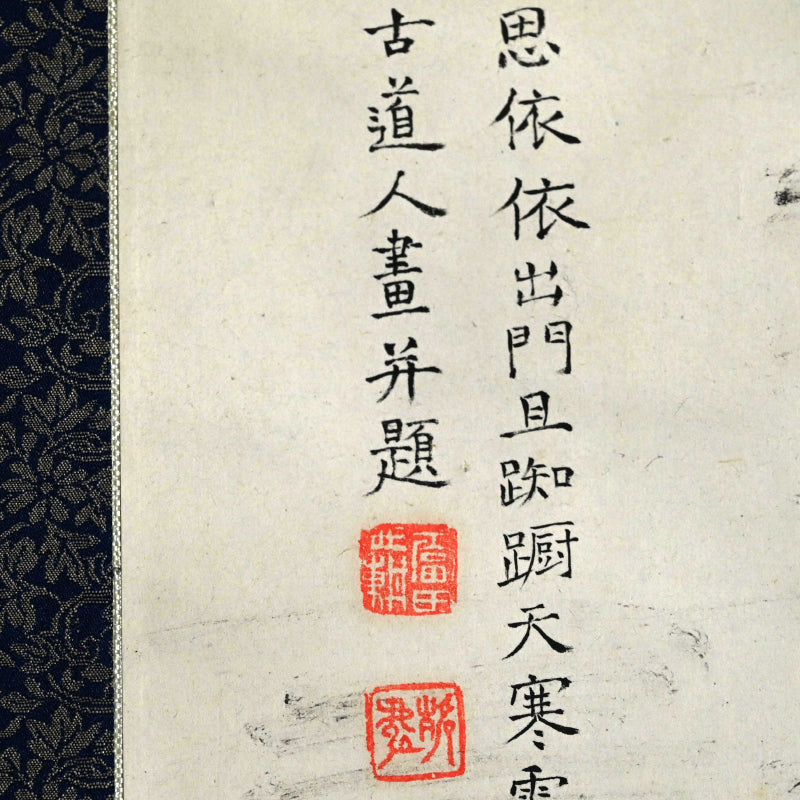 思依依出門且踟蹰天寒
古道人畫并題